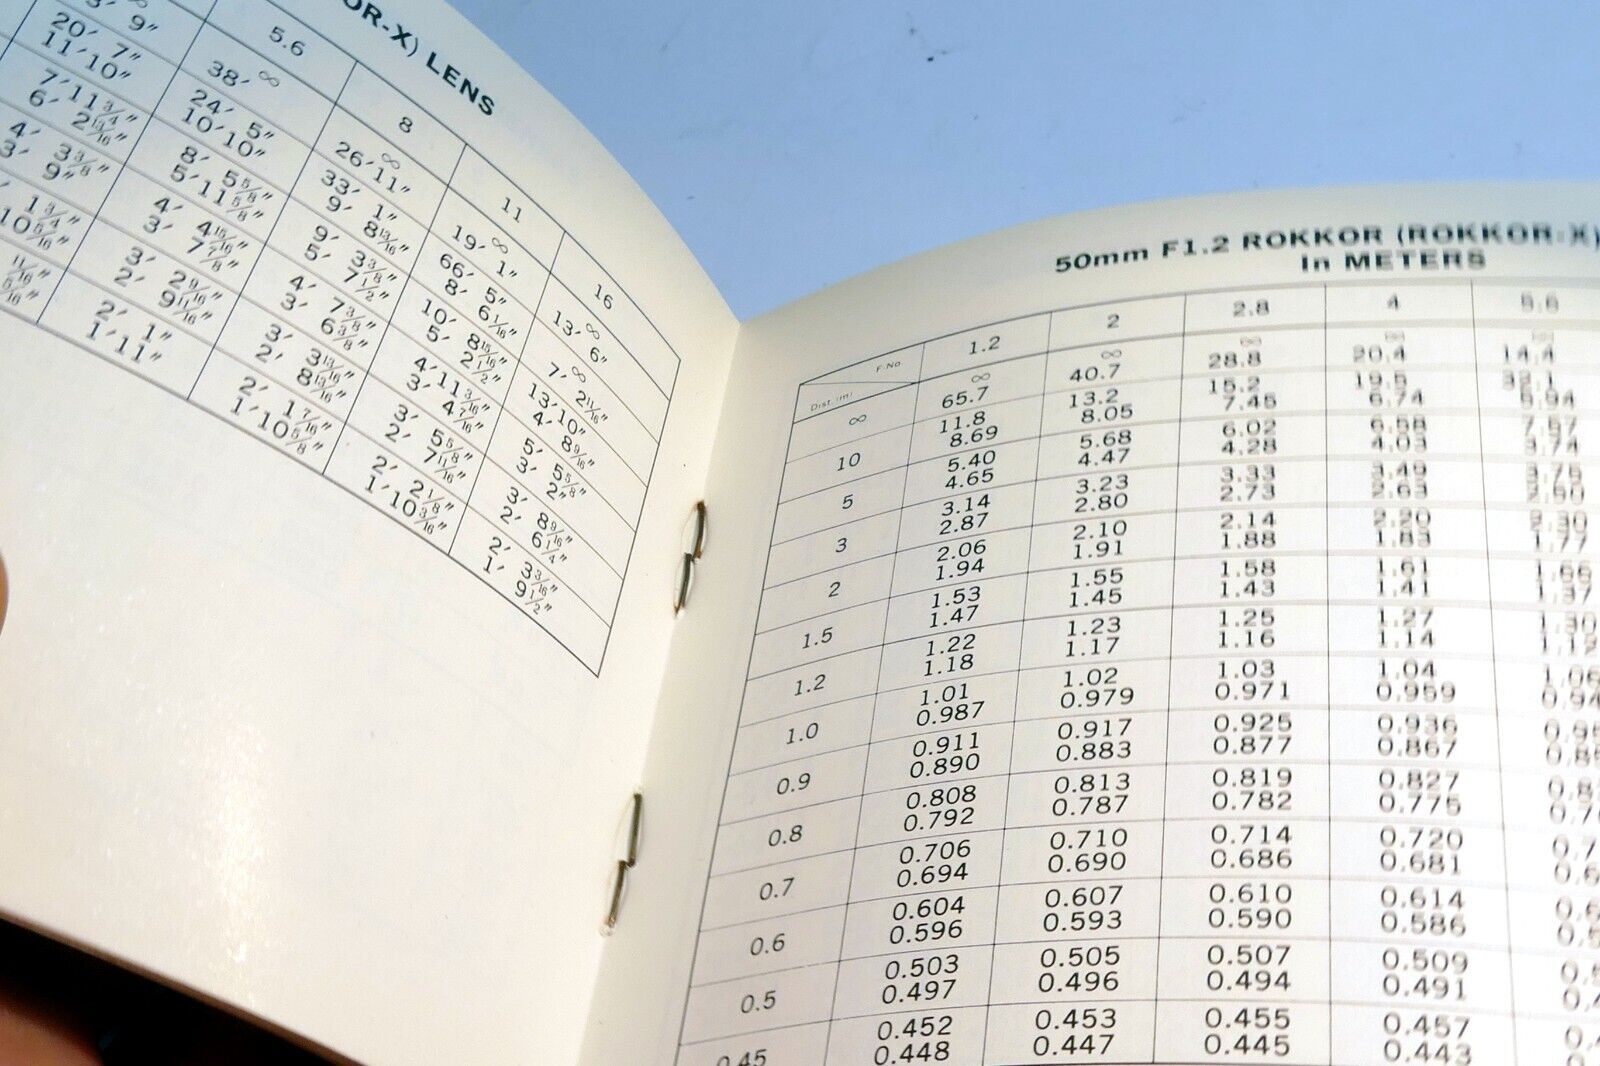 OR-X) LENS
5.6 8 11 16
9″ 38′ ∞ 26′ 11″ 19′ 1″ 13′ 6″
20′ 7″ 24′ 5″ 33′ 1″ 66′ 5″ ∞
11′10″ 10′10″ 9′ 8 13/16″ 8′ 6 1/16″ 7′ 2 11/16″
7′11 3/4″ 8′ 5 5/8″ 9′ 3 3/8″ 10′ 8 15/16″ 13′10″
6′ 2 13/16″ 5′11 5/8″ 5′ 7 1/2″ 5′ 2 1/2″ 4′ 8 9/16″
4′ 3 3/8″ 4′ 4 15/16″ 4′ 7 3/8″ 4′11 3/16″ 5′ 5 5/8″
3′ 9″ 3′ 7 7/8″ 3′ 6 3/8″ 3′ 4 7/16″ 3′ 2″
1 3/4″ 3′ 2 9/16″ 3′ 3 13/16″ 3′ 5 5/8″ 3′ 8 9/16″
10 5/16″ 2′ 9 11/16″ 2′ 8 13/16″ 2′ 7 11/16″ 2′ 6 1/4″
11/16″ 2′ 1″ 2′ 1 7/16″ 2′ 2 1/8″ 2′ 3 3/16″
5/16″ 1′11″ 1′10 5/8″ 1′10 3/16″ 1′ 9 1/2″
50mm F1.2 ROKKOR (ROKKOR-X)
In METERS
F.No 1.2 2 2.8 4 5.6
Dist.(m)
∞ ∞ ∞ ∞ ∞ ∞
65.7 40.7 28.8 20.4 14.4
10 11.8 13.2 15.2 19.5 32.1
8.69 8.05 7.45 6.74 5.94
5 5.40 5.68 6.02 6.58 7.57
4.65 4.47 4.28 4.03 3.74
3 3.14 3.23 3.33 3.49 3.75
2.87 2.80 2.73 2.63 2.50
2 2.06 2.10 2.14 2.20 2.30
1.94 1.91 1.88 1.83 1.77
1.5 1.53 1.55 1.58 1.61 1.66
1.47 1.45 1.43 1.41 1.37
1.2 1.22 1.23 1.25 1.27 1.30
1.18 1.17 1.16 1.14 1.12
1.0 1.01 1.02 1.03 1.04 1.06
0.987 0.979 0.971 0.959 0.94
0.9 0.911 0.917 0.925 0.936
0.890 0.883 0.877 0.867
0.8 0.808 0.813 0.819 0.827
0.792 0.787 0.782 0.775
0.7 0.706 0.710 0.714 0.720
0.694 0.690 0.686 0.681
0.6 0.604 0.607 0.610 0.614
0.596 0.593 0.590 0.586
0.5 0.503 0.505 0.507 0.509
0.497 0.496 0.494 0.491
0.45 0.452 0.453 0.455 0.457
0.448 0.447 0.445 0.443